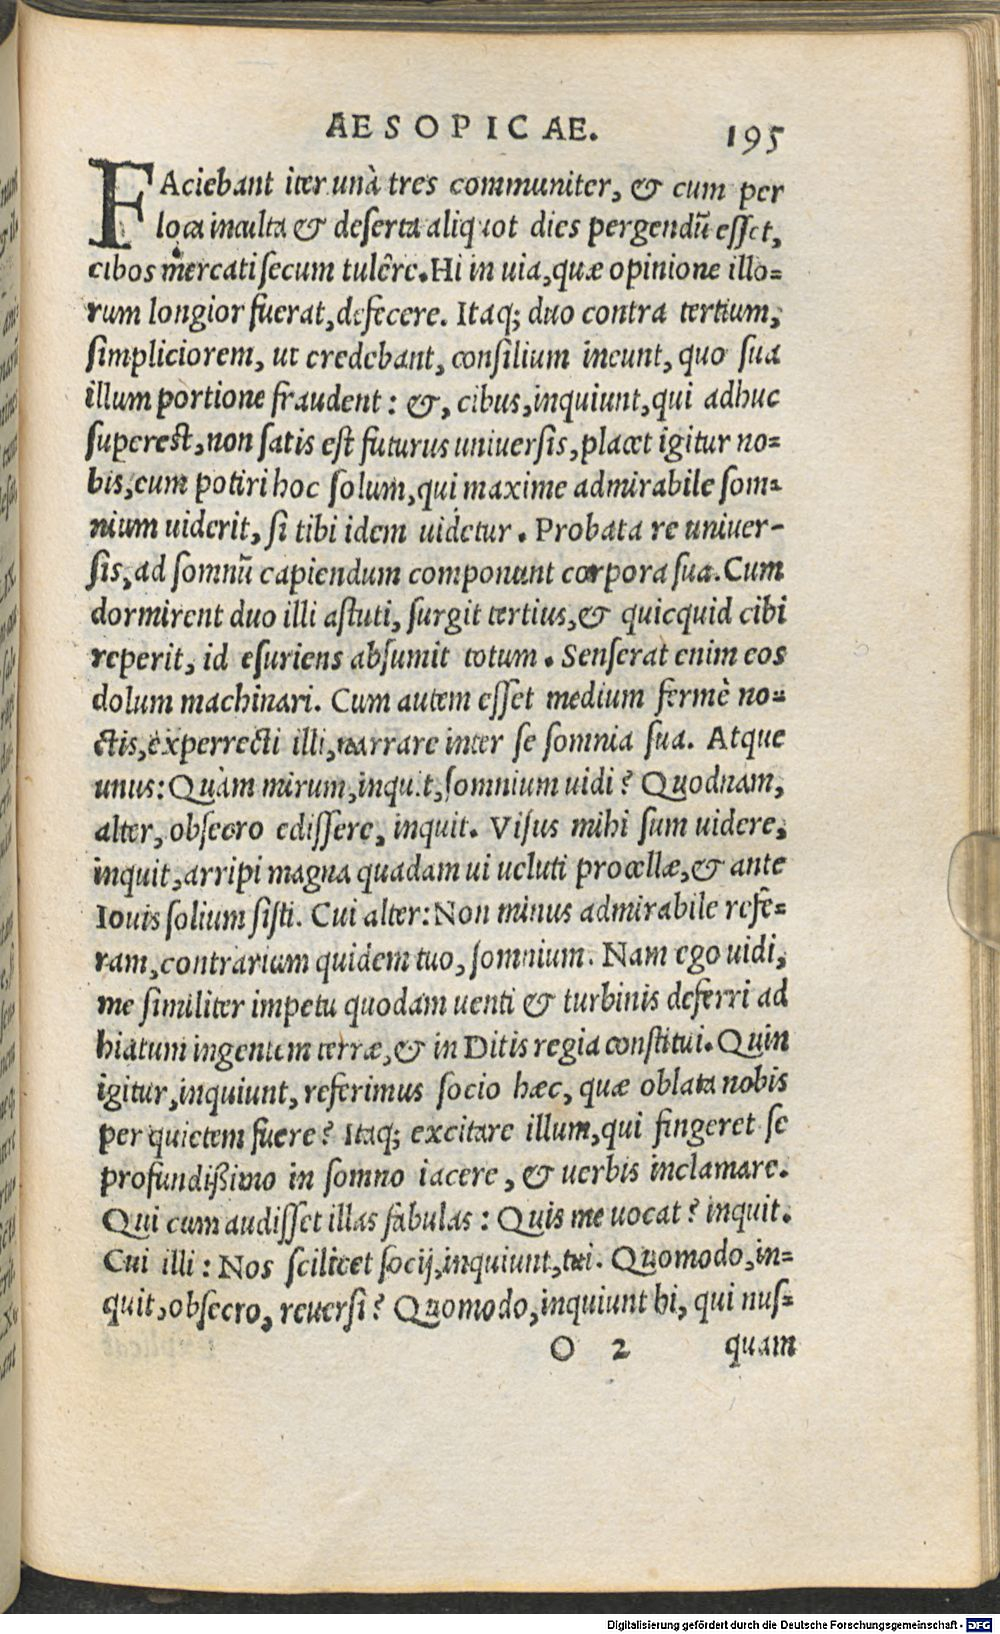 AESOPICAE. 195
FAciebant iter unà tres communiter, & cum per
loca inculta & deserta aliquot dies pergendũ esset,
cibos mercati secum tulêre. Hi in uia, quæ opinione illo=
rum longior fuerat, defecere. Itaq; duo contra tertium,
simpliciorem, ut credebant, consilium ineunt, quo sua
illum portione fraudent: &, cibus, inquiunt, qui adhuc
superest, non satis est futurus uniuersis, placet igitur no=
bis, eum potiri hoc solum, qui maxime admirabile som=
nium uiderit, si tibi idem uidetur. Probata re uniuer-
sis, ad somnũ capiendum componunt corpora sua. Cum
dormirent duo illi astuti, surgit tertius, & quicquid cibi
reperit, id esuriens absumit totum. Senserat enim eos
dolum machinari. Cum autem esset medium fermè no=
ctis, experrecti illi, narrare inter se somnia sua. Atque
unus: Quàm mirum, inquit, somnium uidi? Quodnam,
alter, obsecro edissere, inquit. Visus mihi sum uidere,
inquit, arripi magna quadam ui ueluti procellæ, & ante
Iouis solium sisti. Cui alter: Non minus admirabile refẽ=
ram, contrarium quidem tuo, somnium. Nam ego uidi,
me similiter impetu quodam uenti & turbinis deferri ad
hiatum ingentem terræ, & in Ditis regia constitui. Quin
igitur, inquiunt, referimus socio hæc, quæ oblata nobis
per quietem fuere? Itaq; excitare illum, qui fingeret se
profundißimo in somno iacere, & uerbis inclamare.
Qui cum audisset illas fabulas: Quis me uocat? inquit.
Cui illi: Nos scilicet socij, inquiunt, tui. Quomodo, in=
quit, obsecro, reuersi? Quomodo, inquiunt hi, qui nus=
O 2 quam
Digitalisierung gefördert durch die Deutsche Forschungsgemeinschaft - DFG